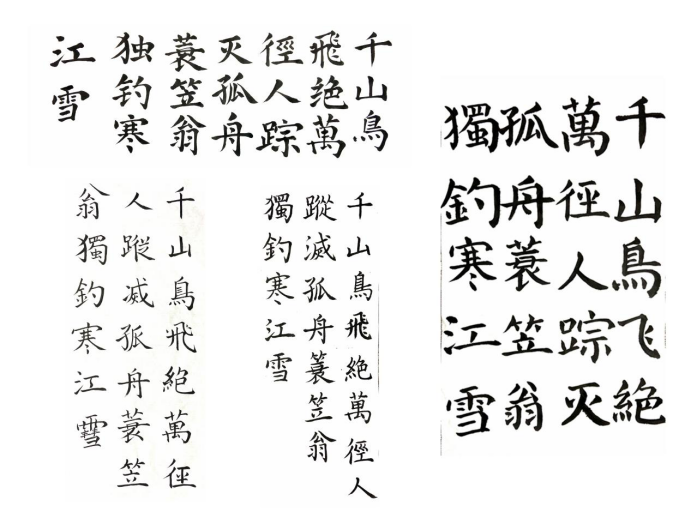 千山鳥
飛绝萬
徑人踪
灭孤舟
蓑笠翁
独钓寒
江雪
千山鳥飞絶
萬徑人踪灭
孤舟蓑笠翁
獨釣寒江雪
千山鳥飛絶萬徑人
蹤滅孤舟蓑笠翁
獨釣寒江雪
千山鳥飛絶萬徑
人蹤滅孤舟蓑笠
翁獨釣寒江雪